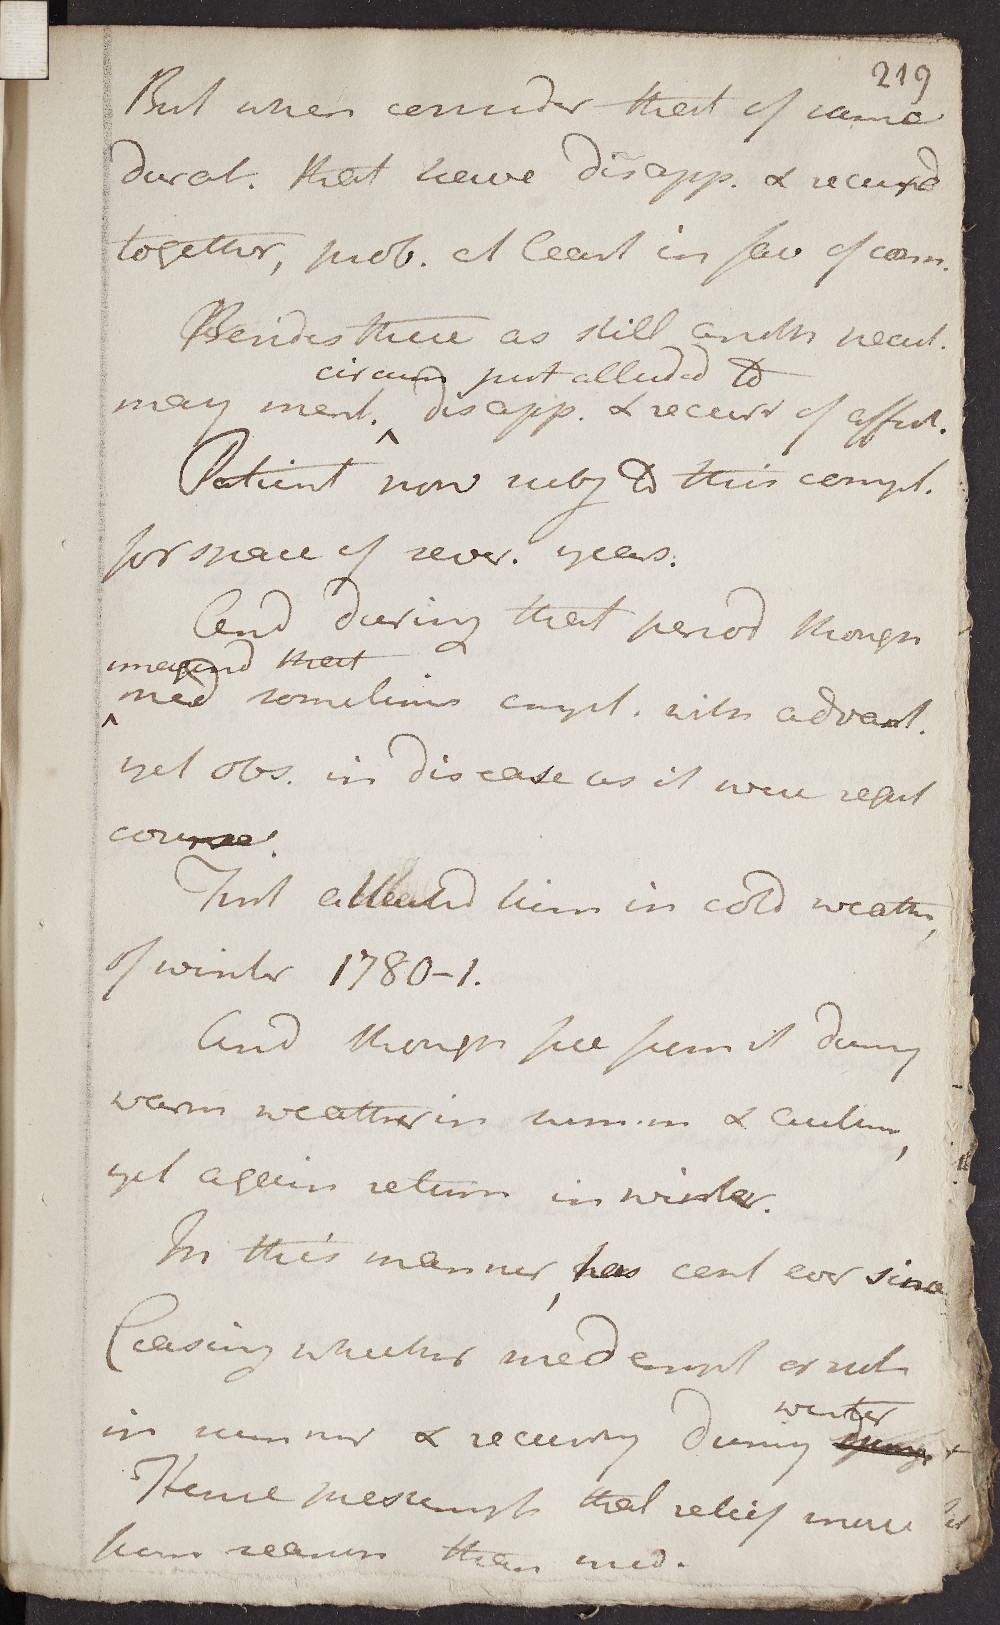 219
But when consider that of same
durat. that have disapp. & recurred
together, prob. at least in fav of com.
Besides these as still anoth neut.
circum just alluded to
may ment. ^ disapp. & recurr of affect.
Patient now subj to this compl.
for space of sever. years.
And during that period though
imagind that
^ med sometimes empl. with advant.
yet obs. in disease as it were regul
course.
First attackd him in cold weather,
of winter 1780-1.
And though free from it during
warm weather in summ & autum,
yet again return in winter.
In this manner, has cont ever since
Ceasing whether med empl or not
in summer & recurring during
winter
Hence presumpt that relief more
from season than med.